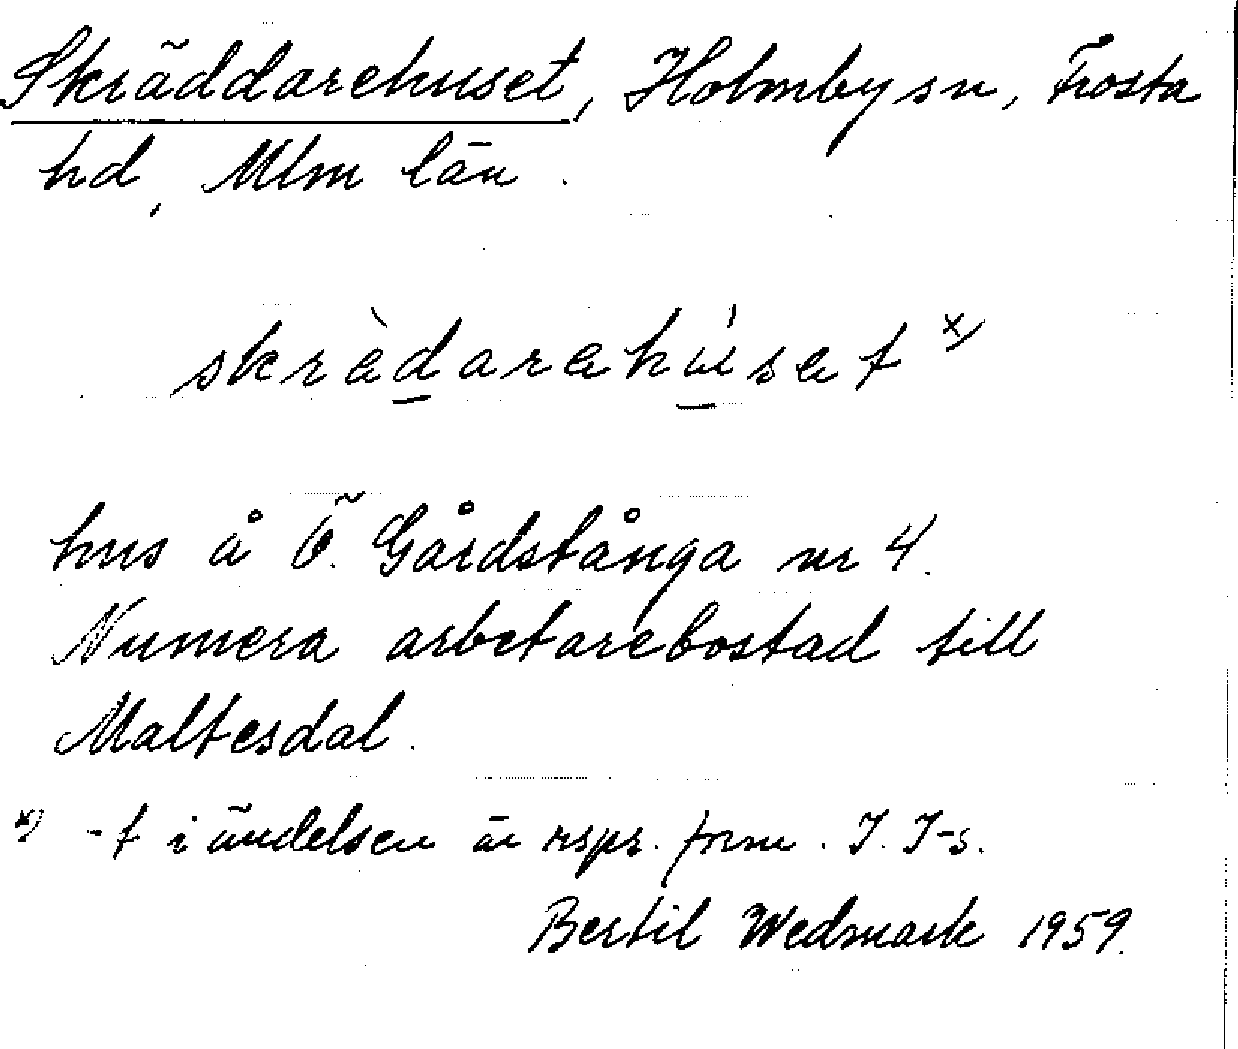 Skräddarehuset, Holmby sn, Frosta
hd, Mlm län.
skrädarehúset x)
hus å Ö. Gårdstånga nr 4.
Numera arbetarebostad till
Maltesdal.
x) -t i ändelsen är rspr. form. I. I-s.
Bertil Wedmark 1959.